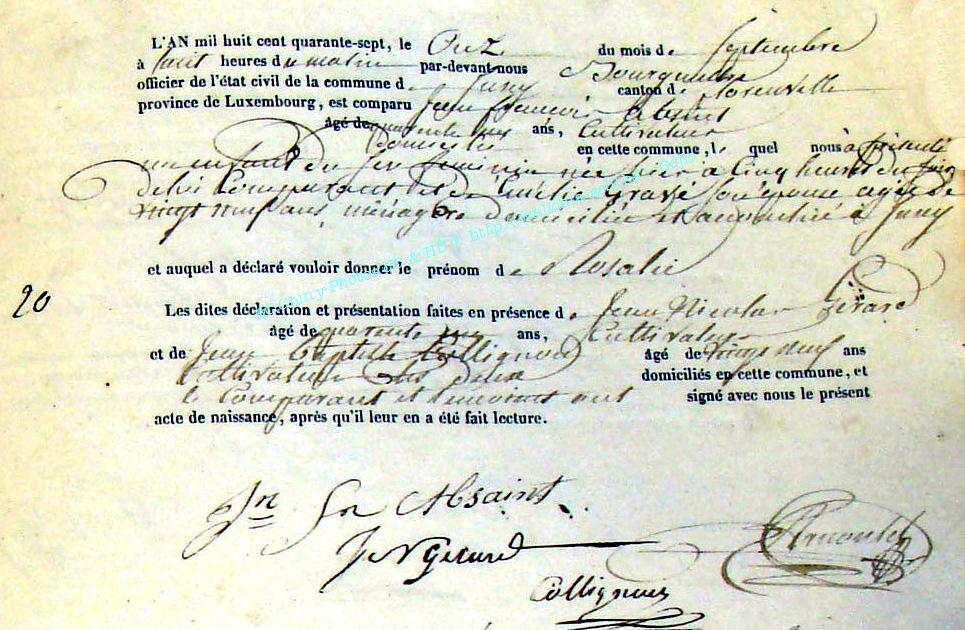 L'AN mil huit cent quarante-sept, le Onze du mois de Septembre
à huit heures du matin par-devant nous
officier de l'état civil de la commune de Juny canton de Florenville
province de Luxembourg, est comparu Jean François Absint
âgé de quarante ans, Cultivateur
Domicilié en cette commune, lequel nous à présenté
un enfant du sexe feminin née hier à Cinq heures du
de lui Comparant et de Gravé son épouse agée de
vingt neuf ans, ménagère domiciliée à Juny
et auquel a déclaré vouloir donner le prénom de Rosalie
20
Les dites déclaration et présentation faites en présence de Jean Nicolas Gérard
âgé de quarante ans, Cultivateur
et de Jean Baptiste Collignon âgé de vingt neuf ans
Cultivateur tous deux domiciliés en cette commune, et
le Comparant et témoins ont signé avec nous le présent
acte de naissance, après qu'il leur en a été fait lecture.
Jn fr Absaint
J N Gerard
Collignon